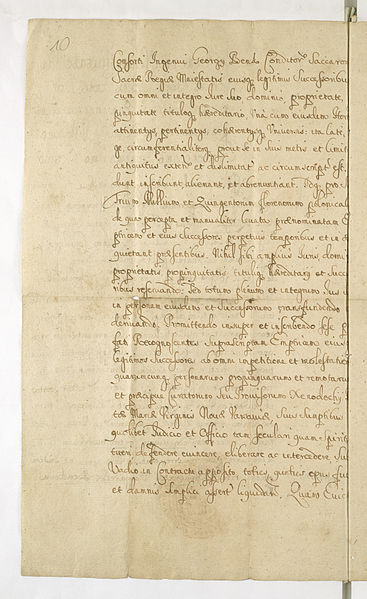 10
Consorti Ingenui Georgy Bendo Conditor Saccaro
Sacræ Regiæ Maiestatis eiusq legitimis Successoribu
cum omni et integro Jure suo dominio proprietate,
pinguitate tituloq hæreditario, Unà cum eiusdem
attinentys pertinentys, cohærentysq Universis: ita late,
ge, circumferentialiterq prout in suis metis et limit
antiquitus extens et distinctat ac circumscript est,
dunt inscribunt, alienant, et abrenuntiant. Idq pro
Trium Millium et Quingentorum florenorum polonical
de quas percepta et manualiter levata prænominatam E
phicano et eius successores perpetuis temporibus et in
quietant præsentibus. Nihil sibi amplius Juris, domi
proprietatis propinquitatis tituliq hæreditary et succ
ribus reservando, Sed totum plenum et integrum Jus
in personam eiusdem et Successorum transfundendo
derivando. Promittendo insuper et inscribendo sese
fati Recognoscentes suprascriptam Emphicam eius
legitimos successores ab omni impetitione et molestation
quarumcunq personarum propinquarum et remotaru
et præcipue Juratorum seu Provisorum Xenodochy
tæ Mariæ Virginis Novæ Varsaviæ, Suis Sumptibus
quolibet Judicio et Officio tam seculari quam Spirit
tueri defendere evincere, eliberare ac intercedere, su
Vadio in Contractu apposito, toties, quoties opus fue
et damnis simplici assert liquidan. Quam Evic